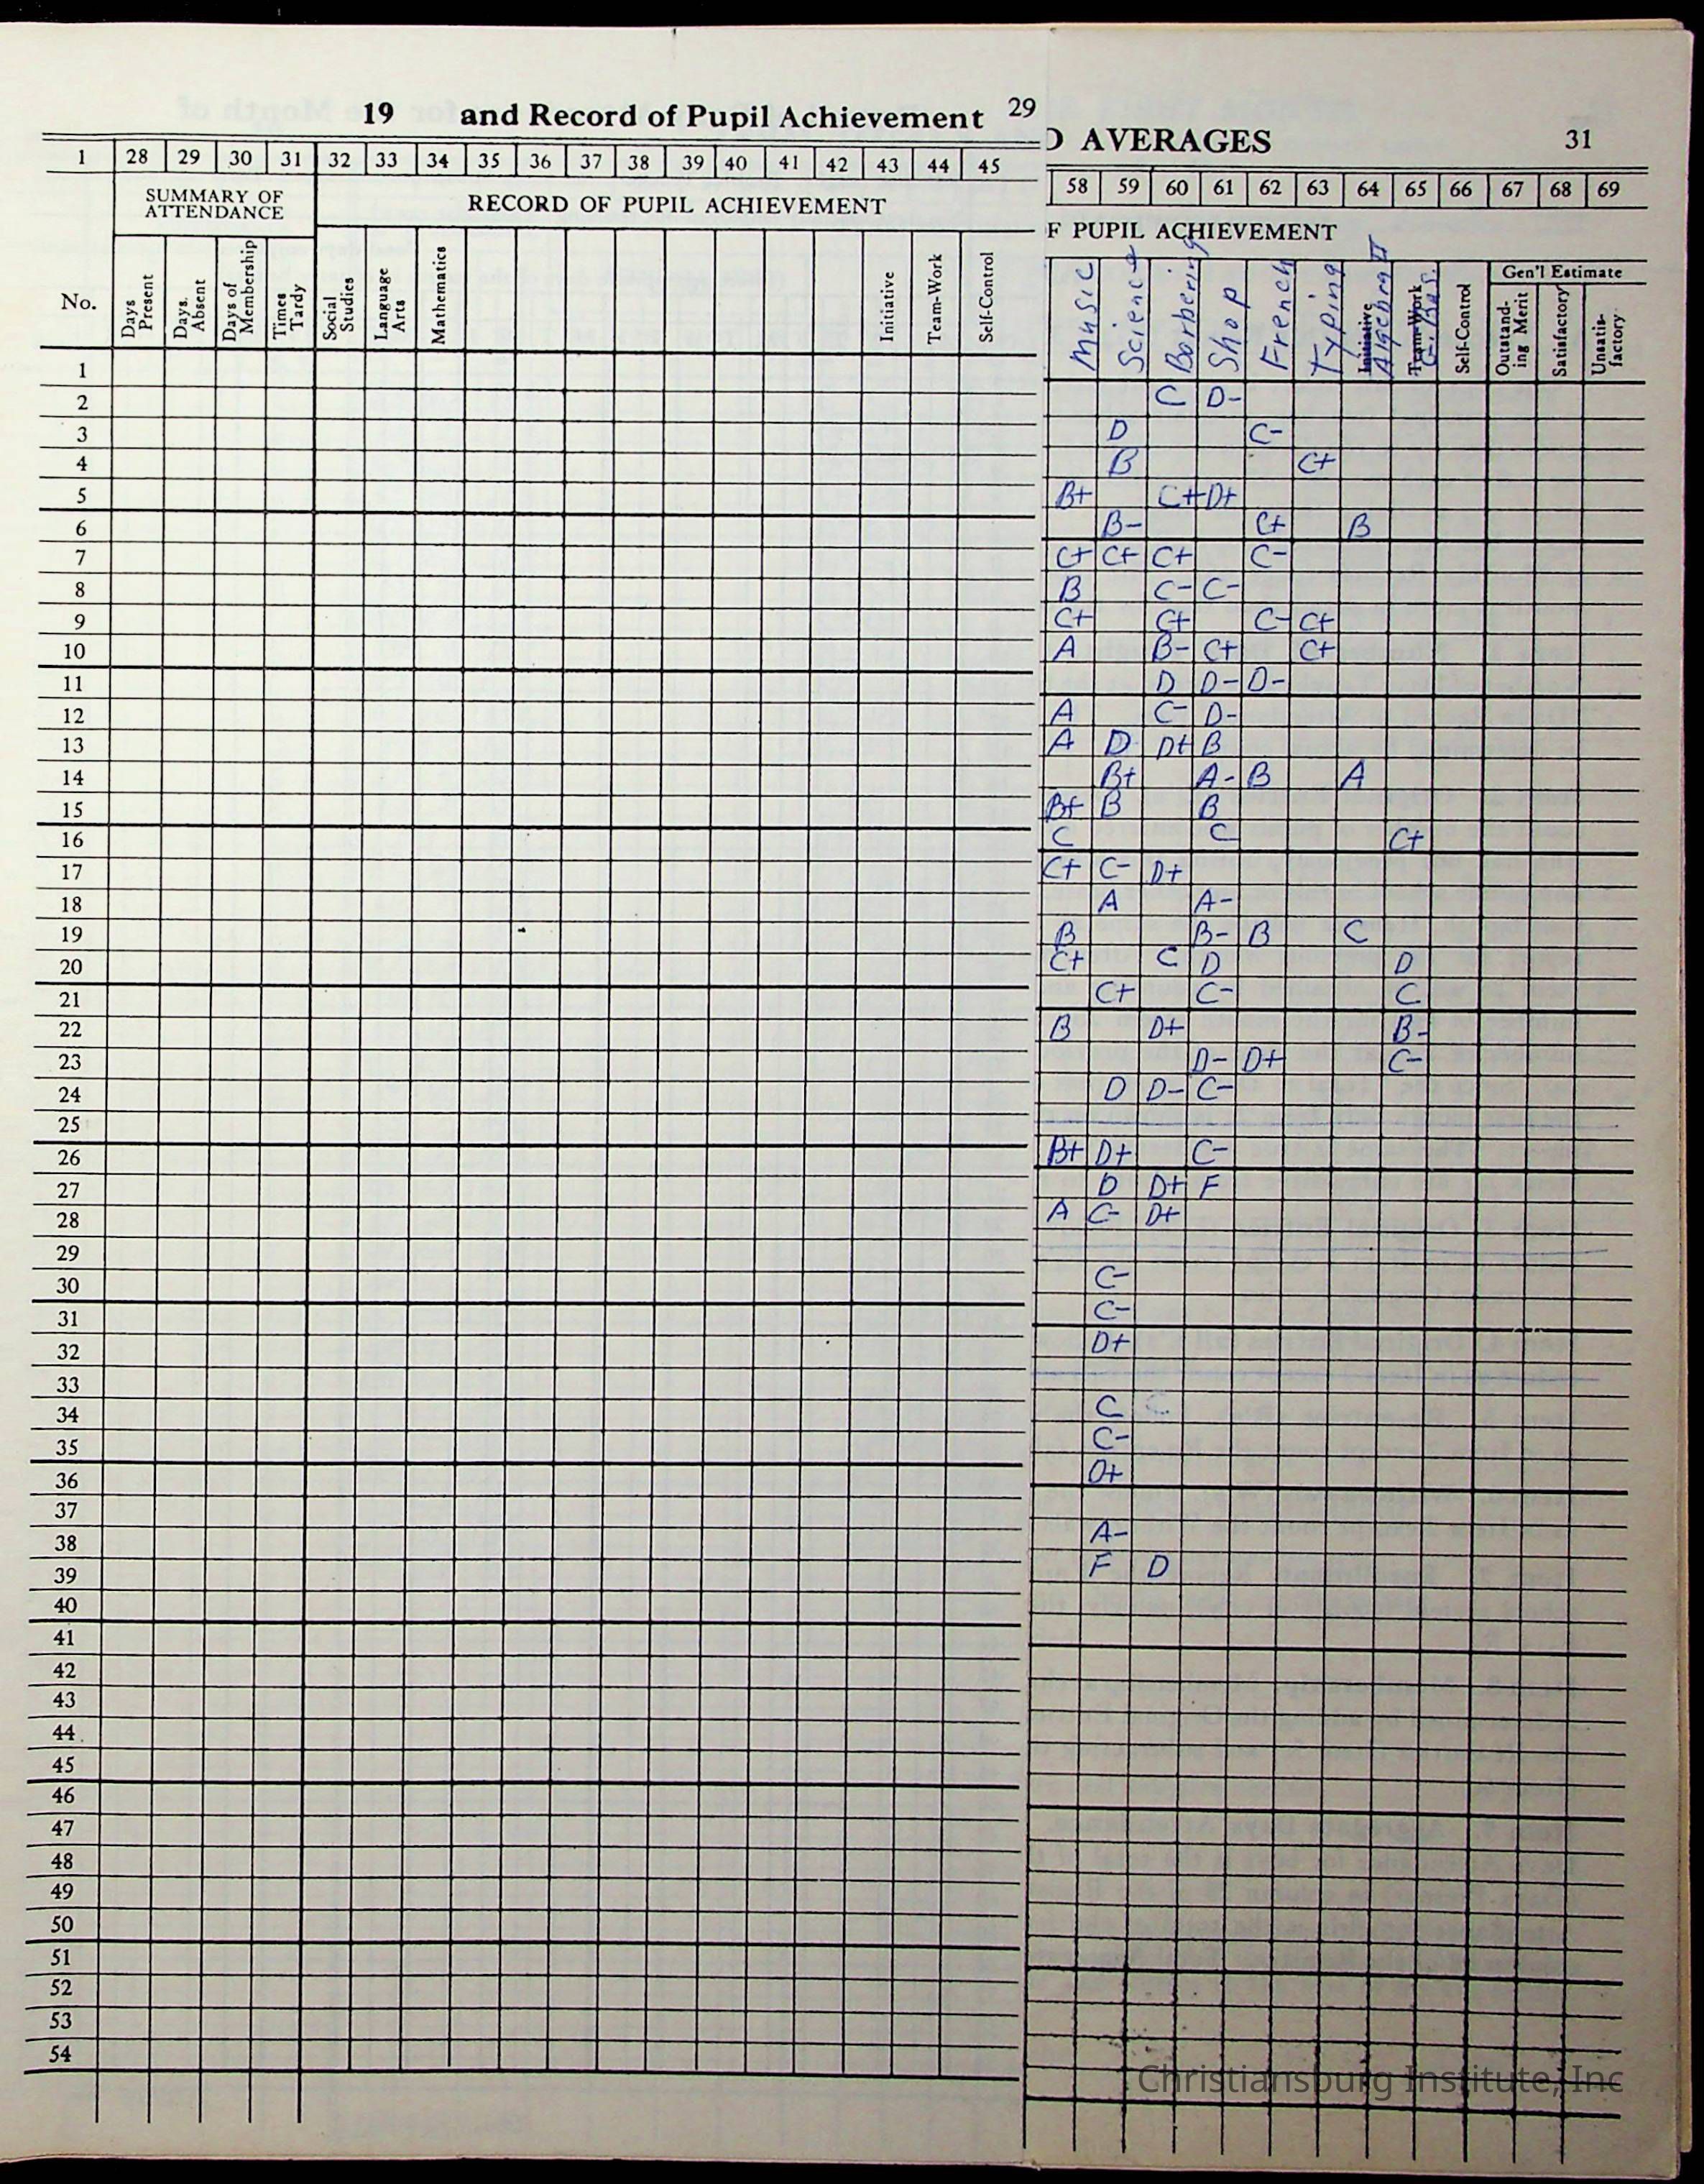 19 and Record of Pupil Achievement 29
1 28 29 30 31 32 33 34 35 36 37 38 39 40 41 42 43 44 45
SUMMARY OF ATTENDANCE
RECORD OF PUPIL ACHIEVEMENT
No.
Days Present
Days. Absent
Days of Membership
Times Tardy
Social Studies
Language Arts
Mathematics
Initiative
Team-Work
Self-Control
1
2
3
4
5
6
7
8
9
10
11
12
13
14
15
16
17
18
19
20
21
22
23
24
25
26
27
28
29
30
31
32
33
34
35
36
37
38
39
40
41
42
43
44
45
46
47
48
49
50
51
52
53
54
D AVERAGES 31
58 59 60 61 62 63 64 65 66 67 68 69
F PUPIL ACHIEVEMENT
Music
Science
Barbering
Shop
French
Typing
Initiative
Algebra II
Team-Work
G. Bus.
Self-Control
Gen'l Estimate
Outstand-ing Merit
Satisfactory
Unsatis-factory
C D-
D C-
B C+
B+ C+ D+
B- C+ B
C+ C+ C+ C-
B C- C-
C+ C+ C- C+
A B- C+ C+
D D- D-
A C- D-
A D D+ B
B+ A- B A
B+ B B
C C C+
C+ C- D+
A A-
B B- B C
C+ C D D
C+ C- C
B D+ B-
D- D+ C-
D D- C-
B+ D+ C-
D D+ F
A C- D+
C-
C-
D+
C C
C-
D+
A-
F D
Christiansburg Institute, Inc